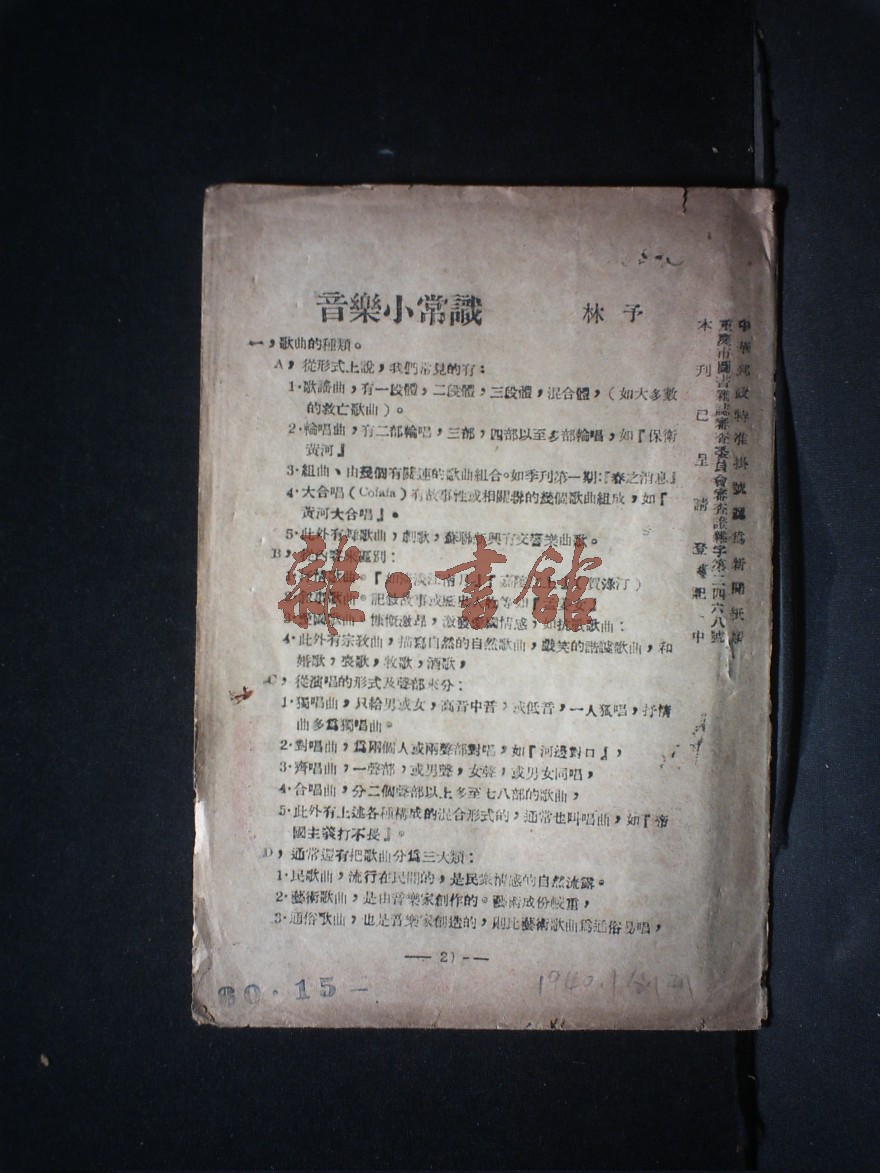 音樂小常識
林予
一，歌曲的種類。
A，從形式上說，我們常見的有：
1·歌謠曲，有一段體，二段體，三段體，混合體，（如大多數
的救亡歌曲）。
2·輪唱曲，有二部輪唱，三部，四部以至多部輪唱，如『保衛
黃河』
3·組曲、由幾個有關連的歌曲組合。如季刊第一期：『春之消息』
4·大合唱（Cofata）有故事性或相關聯的幾個歌曲組成，如『
黃河大合唱』。
5·此外有舞歌曲，劇歌，蘇聯新興有交響樂曲歌。
B，
區別：
情歌曲。
賀淥汀）
記敍故事或
愛國歌曲，慷慨激昂，激發愛國情感，如抗戰歌曲：
4·此外有宗敎曲，描寫自然的自然歌曲，戲笑的諧謔歌曲，和
婚歌，喪歌，牧歌，酒歌，
C，從演唱的形式及聲部來分：
1·獨唱曲，只給男或女，高音中音，或低音，一人獨唱，抒情
曲多爲獨唱曲。
2·對唱曲，爲兩個人或兩聲部對唱，如『河邊對口』，
3·齊唱曲，一聲部，或男聲，女聲，或男女同唱，
4·合唱曲，分二個聲部以上多至七八部的歌曲，
5·此外有上述各種構成的混合形式的，通常也叫唱曲，如『帝
國主義打不長』。
D，通常還有把歌曲分爲三大類：
1·民歌曲，流行在民間的，是民衆情感的自然流露。
2·藝術歌曲，是由音樂家創作的。藝術成份較重，
3·通俗歌曲，也是音樂家創造的，則比藝術歌曲爲通俗易唱，
中華郵政特准掛號認爲新聞紙類
重慶市圖書雜誌審查委員會審查證雜字第二四六八號
本刊已呈請登記中
雜·書館
60·15-